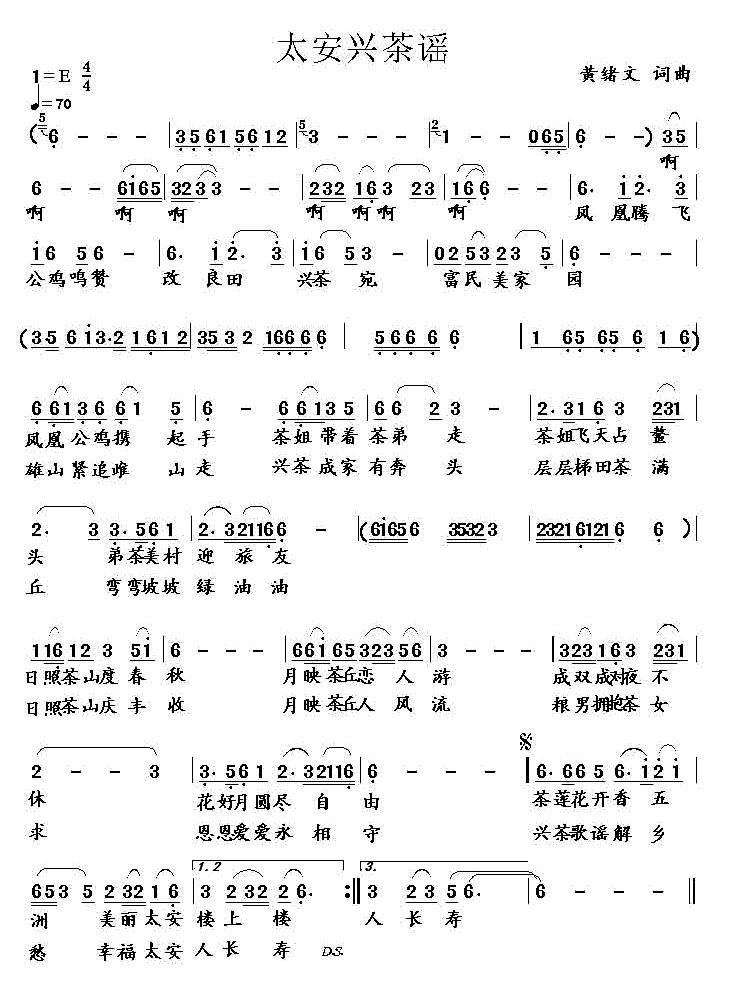 太安兴茶谣
1=E 4/4
黄绪文 词曲
♩=70
(6 - - - | 3561 5612 | 3 - - - | 1 - - 065 | 6 - - ) 35 |
啊
6 - - 6165 | 3233 - - | 232 163 23 | 166 - - | 6· 12· 3 |
啊 啊 啊 啊 啊啊 啊 凤 凰腾 飞
16 56 - | 6· 12· 3 | 16 53 - | 0253 23 5 | 6 - - - |
公鸡鸣赞 改 良田 兴茶 宛 富民 美家 园
(35 613·2 1612 | 3532 16666 | 5666 6 | 1 65 656 16) |
66136 61 5 | 6 - 66135 | 66 23 - | 2·316 3 231 |
凤凰公鸡携 起 手 茶姐 带着 茶弟 走 茶姐飞天占 鳌
雄山紧追雌 山 走 兴茶 成家 有奔 头 层层梯田茶 满
2· 3 3·561 | 2·321166 - | (61656 35323 | 232161216 6 6) |
头 弟茶美村 迎 旅 友
丘 弯弯坡坡 绿 油 油
11612 3 51 | 6 - - - | 6616532356 | 3 - - - | 323163 231 |
日照茶山度 春 秋 月映 茶丘恋 人 游 成双成对夜 不
日照茶山庆 丰 收 月映 茶丘人 风 流 粮男拥抱茶 女
2 - - 3 | 3·561 2·32116 | 6 - - - ‖ 6·665 6·121 |
休 花好月圆尽 自 由 茶莲花开香 五
求 恩恩爱爱永 相 守 兴茶歌谣解 乡
1. 2 3.
653 5 232 16 | 3 232 26· :‖ 3 235 56· | 6 - - - |
洲 美丽太安 楼 上 楼 人 长 寿
愁 幸福太安 人 长 寿 D.S.